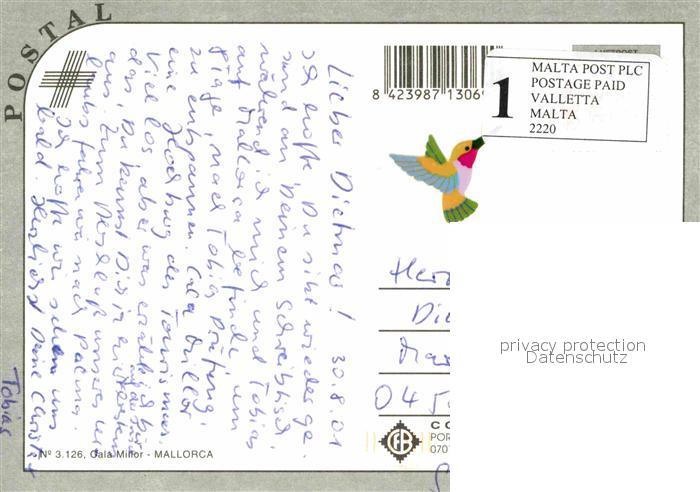 POSTAL
8 423987 1306
1
MALTA POST PLC
POSTAGE PAID
VALLETTA
MALTA
2220
Lieber Dietmar! 30.8.01
Ich hoffe Du sitzt wieder ge-
sund an Deinem Schreibtisch,
während ich mich und Tobias
auf Mallorca befinde um
nach Tobias Prüfung,
zu entspannen. Cala Millor
eine Hochburg des Tourismus.
Viel los aber was erzähl ich Dir
das, Du kannst Dich ja
aus. Zum Abschluß unseres
fahren wir nach Palma.
Ich hoffe wir sehen uns
bald. Herzlichst Deine
Tobias
Herr
Die
045
Nº 3.126, Cala Millor - MALLORCA
CO
POR
070
privacy protection
Datenschutz